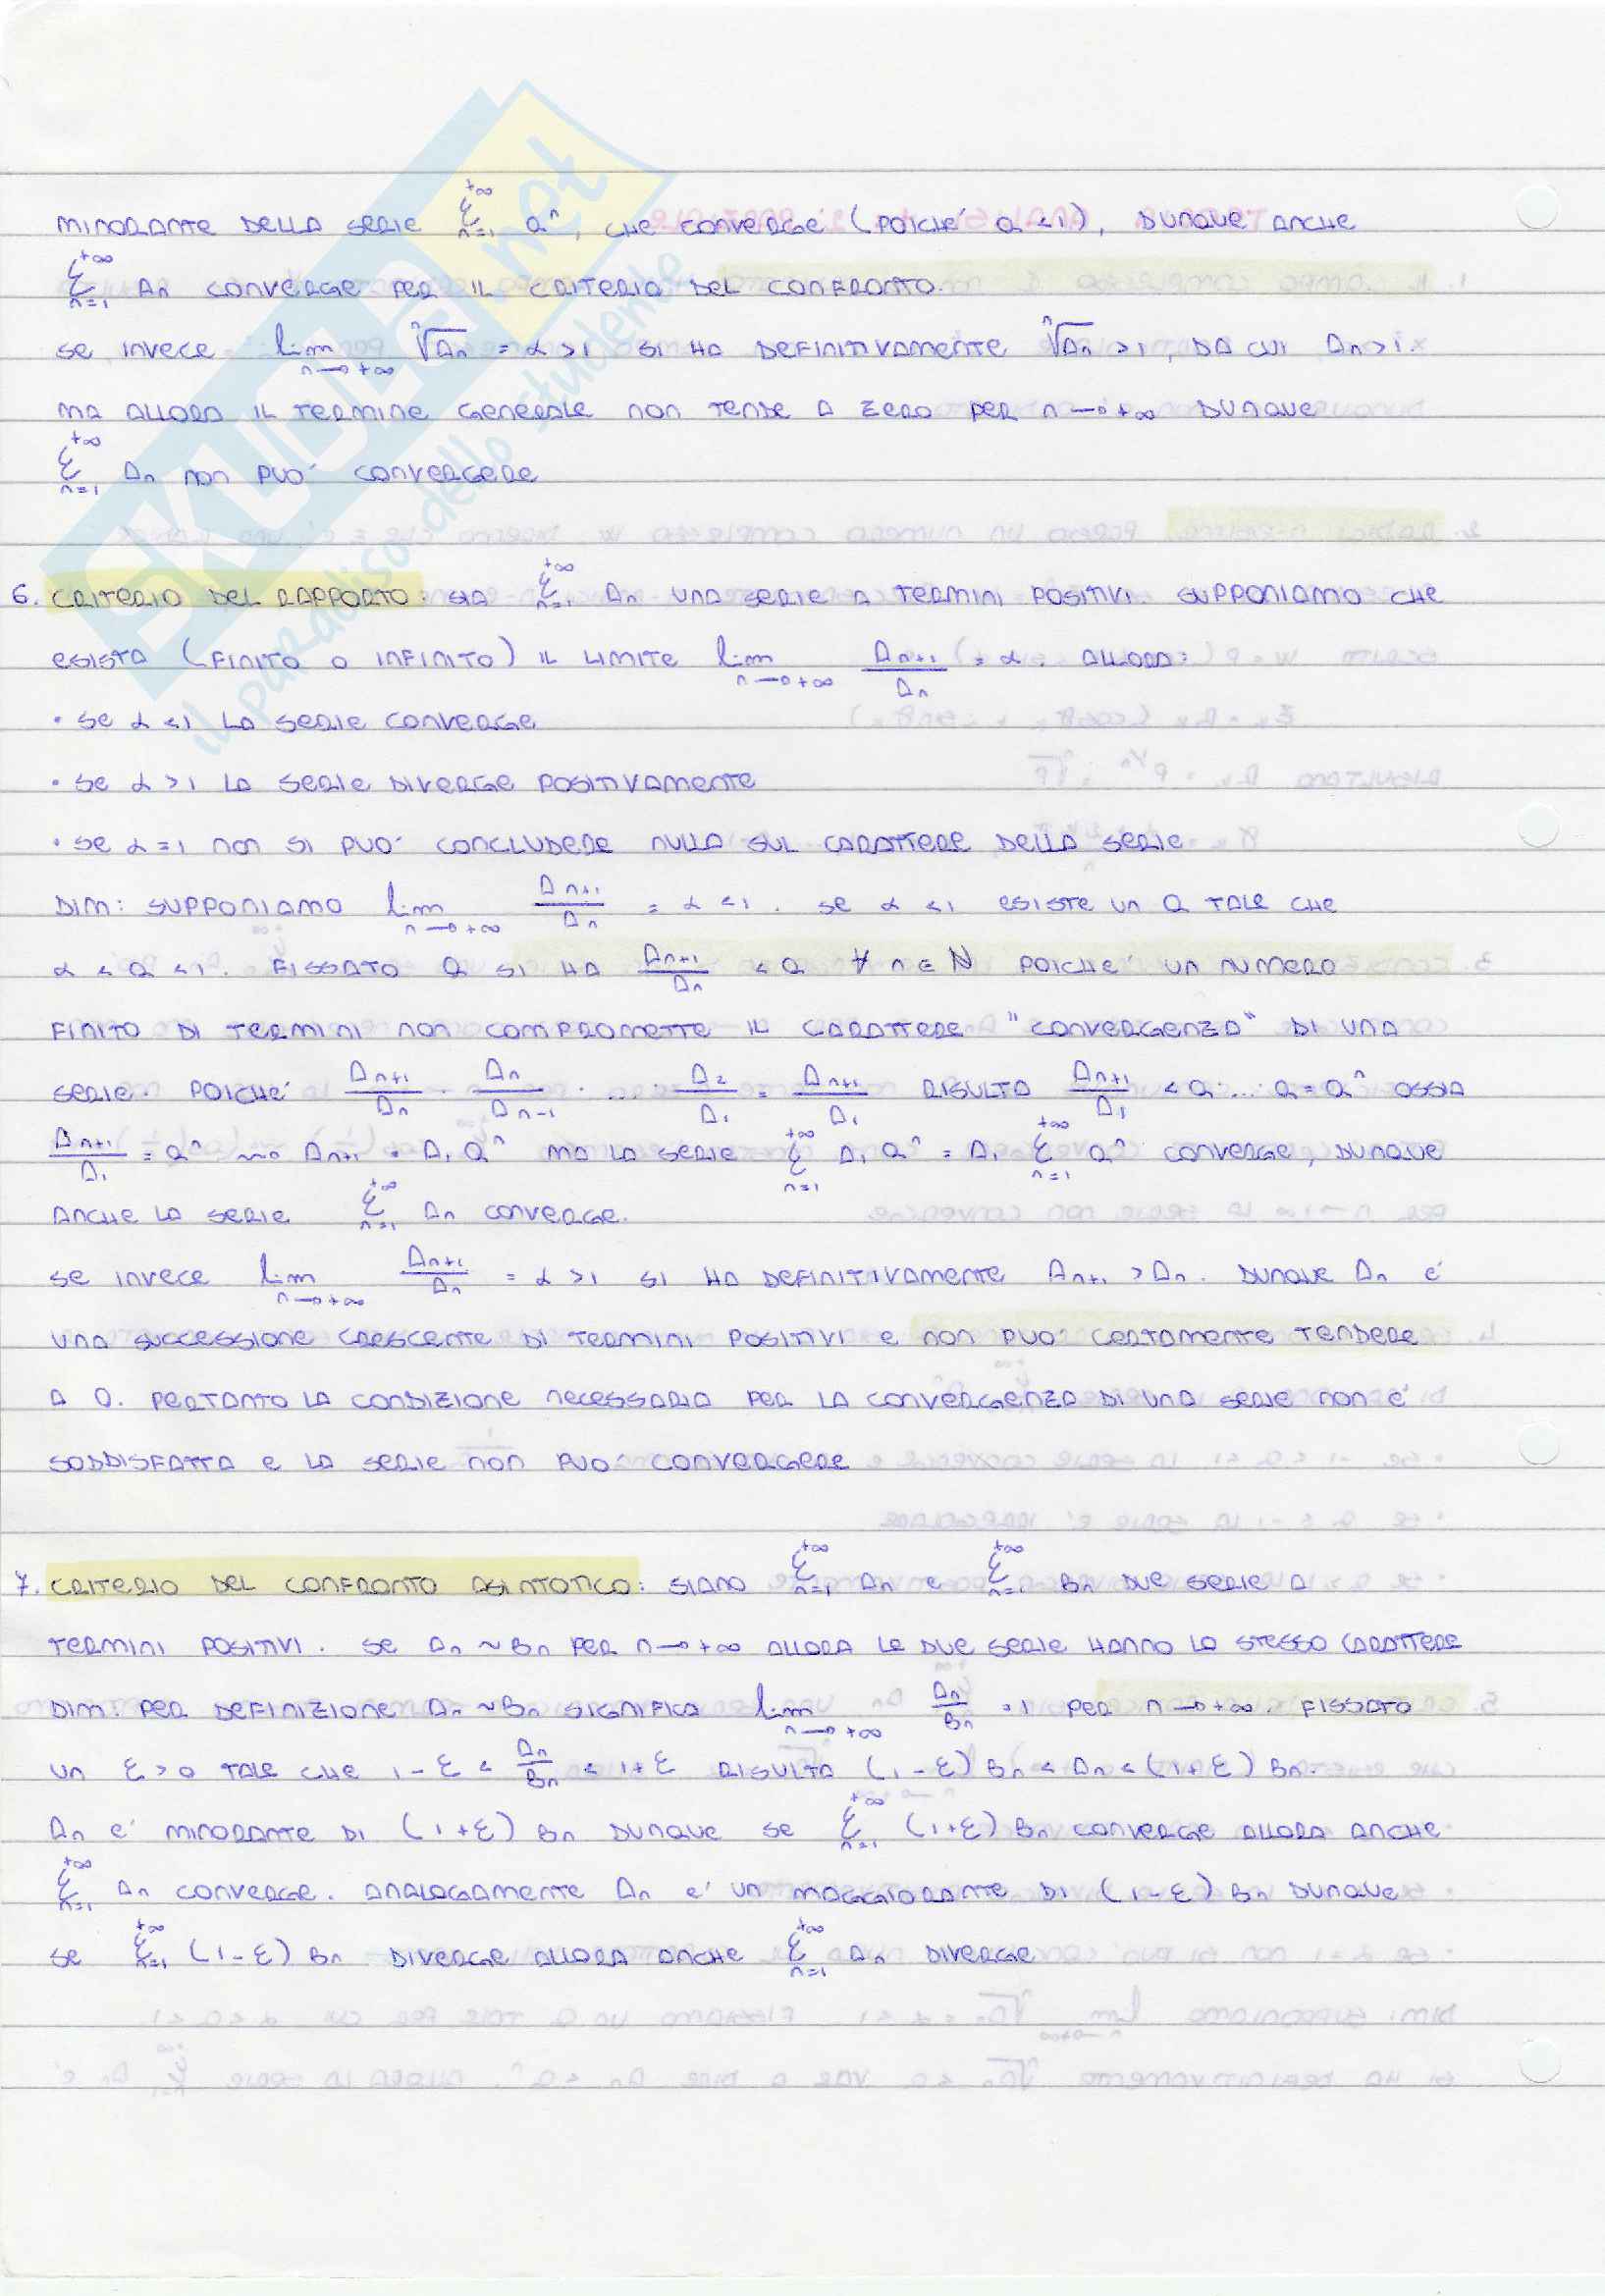 MINORANTE DELLA SERIE +∞Σn=1 Qⁿ, CHE CONVERGE (POICHE' Q<1), DUNQUE ANCHE
+∞Σn=1 An CONVERGE PER IL CRITERIO DEL CONFRONTO.
SE INVECE lim n→+∞ ⁿ√An = α>1 SI HA DEFINITIVAMENTE ⁿ√An >1, DA CUI An>1.
MA ALLORA IL TERMINE GENERALE NON TENDE A ZERO PER n→+∞ DUNQUE
+∞Σn=1 An NON PUO' CONVERGERE
6. CRITERIO DEL RAPPORTO: SIA +∞Σn=1 An UNA SERIE A TERMINI POSITIVI. SUPPONIAMO CHE
ESISTA (FINITO O INFINITO) IL LIMITE lim n→+∞ An+1/An = α. ALLORA:
• SE α<1 LA SERIE CONVERGE
• SE α>1 LA SERIE DIVERGE POSITIVAMENTE
• SE α=1 NON SI PUO' CONCLUDERE NULLA SUL CARATTERE DELLA SERIE
DIM: SUPPONIAMO lim n→+∞ An+1/An = α<1. SE α<1 ESISTE UN Q TALE CHE
α<Q<1. FISSATO Q SI HA An+1/An < Q ∀ n∈N POICHE' UN NUMERO
FINITO DI TERMINI NON COMPROMETTE IL CARATTERE "CONVERGENZA" DI UNA
SERIE. POICHE' An+1/An · An/An-1 · ... · A2/A1 = An+1/A1 RISULTA An+1/A1 < Q·...·Q = Qⁿ OSSIA
An+1/A1 = Qⁿ ⇝ An+1 = A1 Qⁿ MA LA SERIE +∞Σn=1 A1 Qⁿ = A1 +∞Σn=1 Qⁿ CONVERGE, DUNQUE
ANCHE LA SERIE +∞Σn=1 An CONVERGE.
SE INVECE lim n→+∞ An+1/An = α>1 SI HA DEFINITIVAMENTE An+1 > An. DUNQUE An E'
UNA SUCCESSIONE CRESCENTE DI TERMINI POSITIVI E NON PUO' CERTAMENTE TENDERE
A 0. PERTANTO LA CONDIZIONE NECESSARIA PER LA CONVERGENZA DI UNA SERIE NON E'
SODDISFATTA E LA SERIE NON PUO' CONVERGERE
7. CRITERIO DEL CONFRONTO ASINTOTICO: SIANO +∞Σn=1 An E +∞Σn=1 Bn DUE SERIE A
TERMINI POSITIVI. SE An ~ Bn PER n→+∞ ALLORA LE DUE SERIE HANNO LO STESSO CARATTERE
DIM: PER DEFINIZIONE An ~ Bn SIGNIFICA lim n→+∞ An/Bn = 1 PER n→+∞. FISSATO
UN ε>0 TALE CHE 1-ε < An/Bn < 1+ε RISULTA (1-ε) Bn < An < (1+ε) Bn.
An E' MINORANTE DI (1+ε) Bn DUNQUE SE +∞Σn=1 (1+ε) Bn CONVERGE ALLORA ANCHE
+∞Σn=1 An CONVERGE. ANALOGAMENTE An E' UN MAGGIORANTE DI (1-ε) Bn DUNQUE
SE +∞Σn=1 (1-ε) Bn DIVERGE ALLORA ANCHE +∞Σn=1 An DIVERGE
SKUOLA.net
il paradiso dello studente